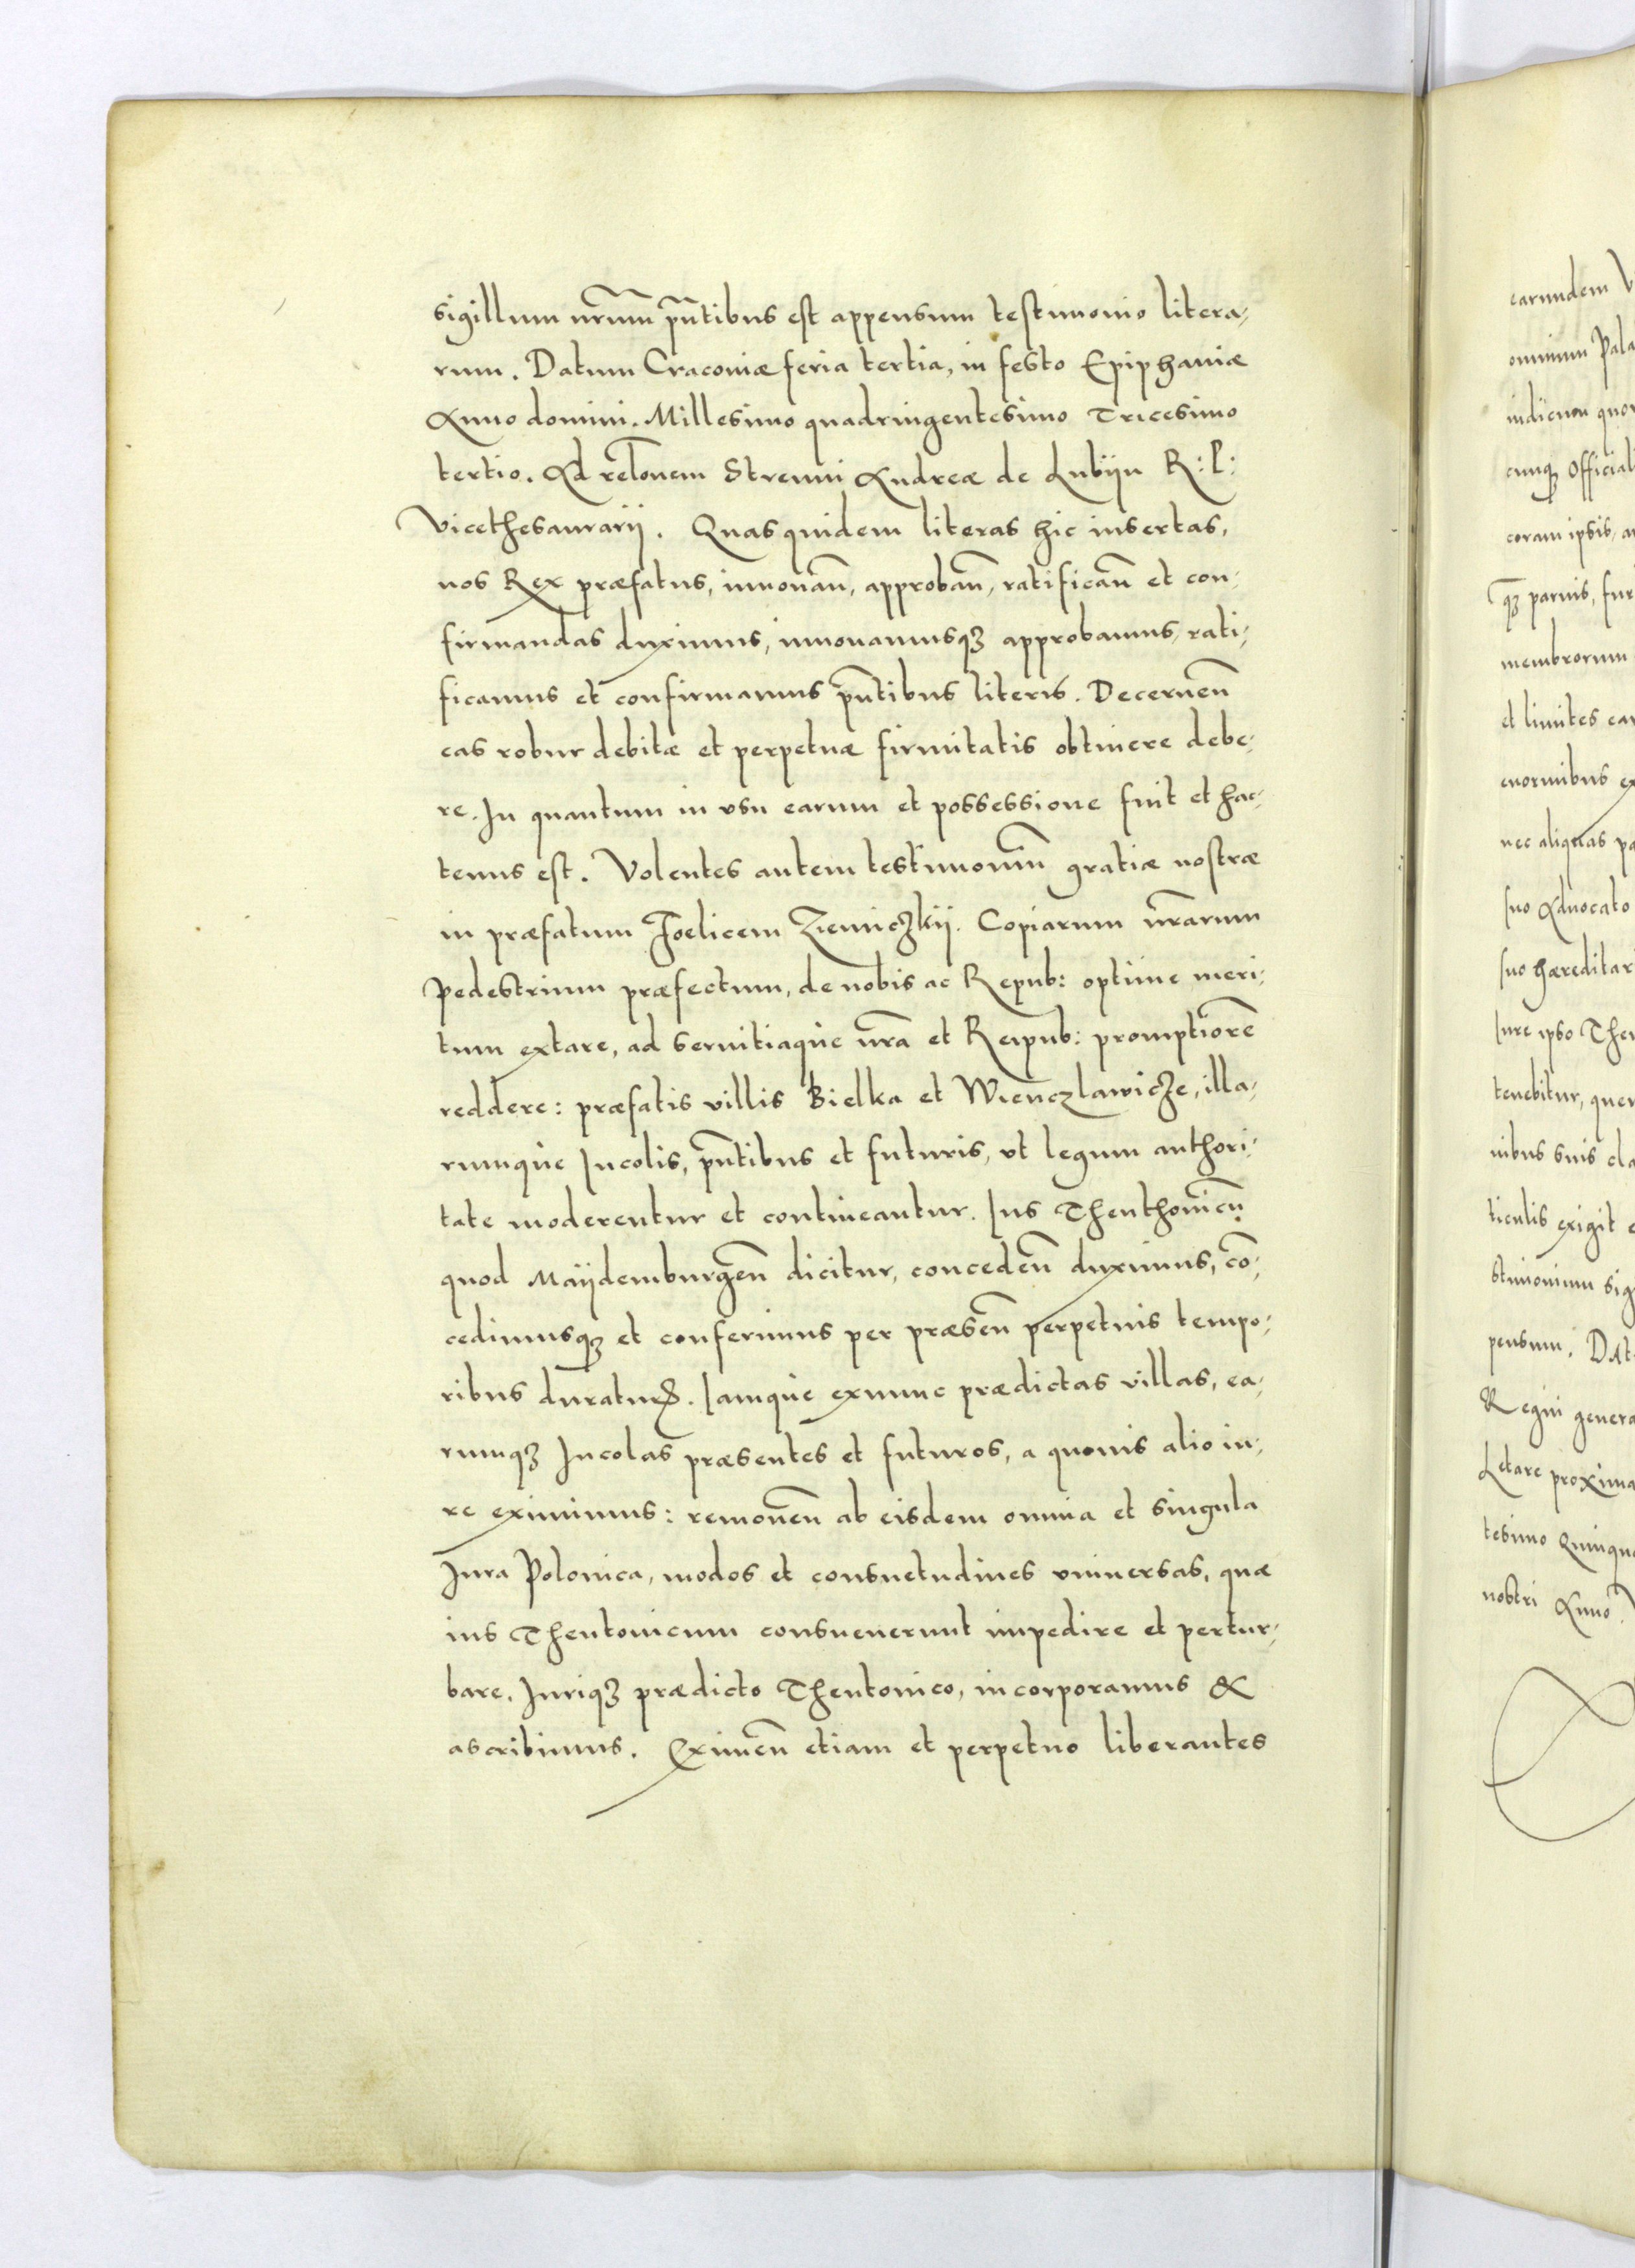 sigillum nr̃um pñtibus est appensum testimonio litera,
rum. Datum Cracoviæ feria tertia, in festo Epiphaniæ
Anno domini. Millesimo quadringentesimo Tricesimo
tertio. Ad relõnem Strenui Andreæ de Lubijn R: P:
Vicethesaurarij. Quas quidem literas hic insertas,
nos Rex præfatus, innouañ, approbañ, ratificañ et con,
firmandas duximus, innouamusqꝫ approbamus, rati,
ficamus et confirmamus pñtibus literis. Decerneñ
eas robur debitæ et perpetuæ firmitatis obtinere debe,
re. In quantum in vsu earum et possessione fuit et hac,
tenus est. Volentes autem testimoniũ gratiæ nostræ
in præfatum Foelicem Zieniczkij. Copiarum nr̃arum
Pedestrium præfectum, de nobis ac Repub: optime meri,
tum extare, ad seruitiaque nr̃a et Reipub: promptiorẽ
reddere: præfatis villis Bielka et Wienczlawicze, illa,
rumque Incolis, pñtibus et futuris, vt legum authori,
tate moderentur et contineantur. Ius Theuthonicũ
quod Maijdemburgeñ dicitur, concedeñ duximus, cõ,
cedimusqꝫ et conferimus per præseñ perpetuis tempo,
ribus duraturꝭ. Iamque exnunc prædictas villas, ea,
rumqꝫ Incolas præsentes et futuros, a quouis alio iu,
re eximimus: remoueñ ab eisdem omnia et singula
Jura Polonica, modos et consuetudines vniuersas, quæ
ius Theutonicum consueuerunt impedire et pertur,
bare. Juriqꝫ prædicto Theutonico, incorporamus &
ascribimus. Eximeñ etiam et perpetuo liberantes
earundem
omnium Pala
cunqꝫ Official
coram ipsis,
qꝫ paruis, fur
membrorum
et limites ear
enormibus ex
nec aliquas pa
suo Aduocato
suo hæreditar
Iure ipso Theu
tenebitur, quem
nibus suis cla
ticulis exigit
stimonium sig
pensum. Dat
Regni genera
Letare proxima
tesimo Quinqua
nostri Anno